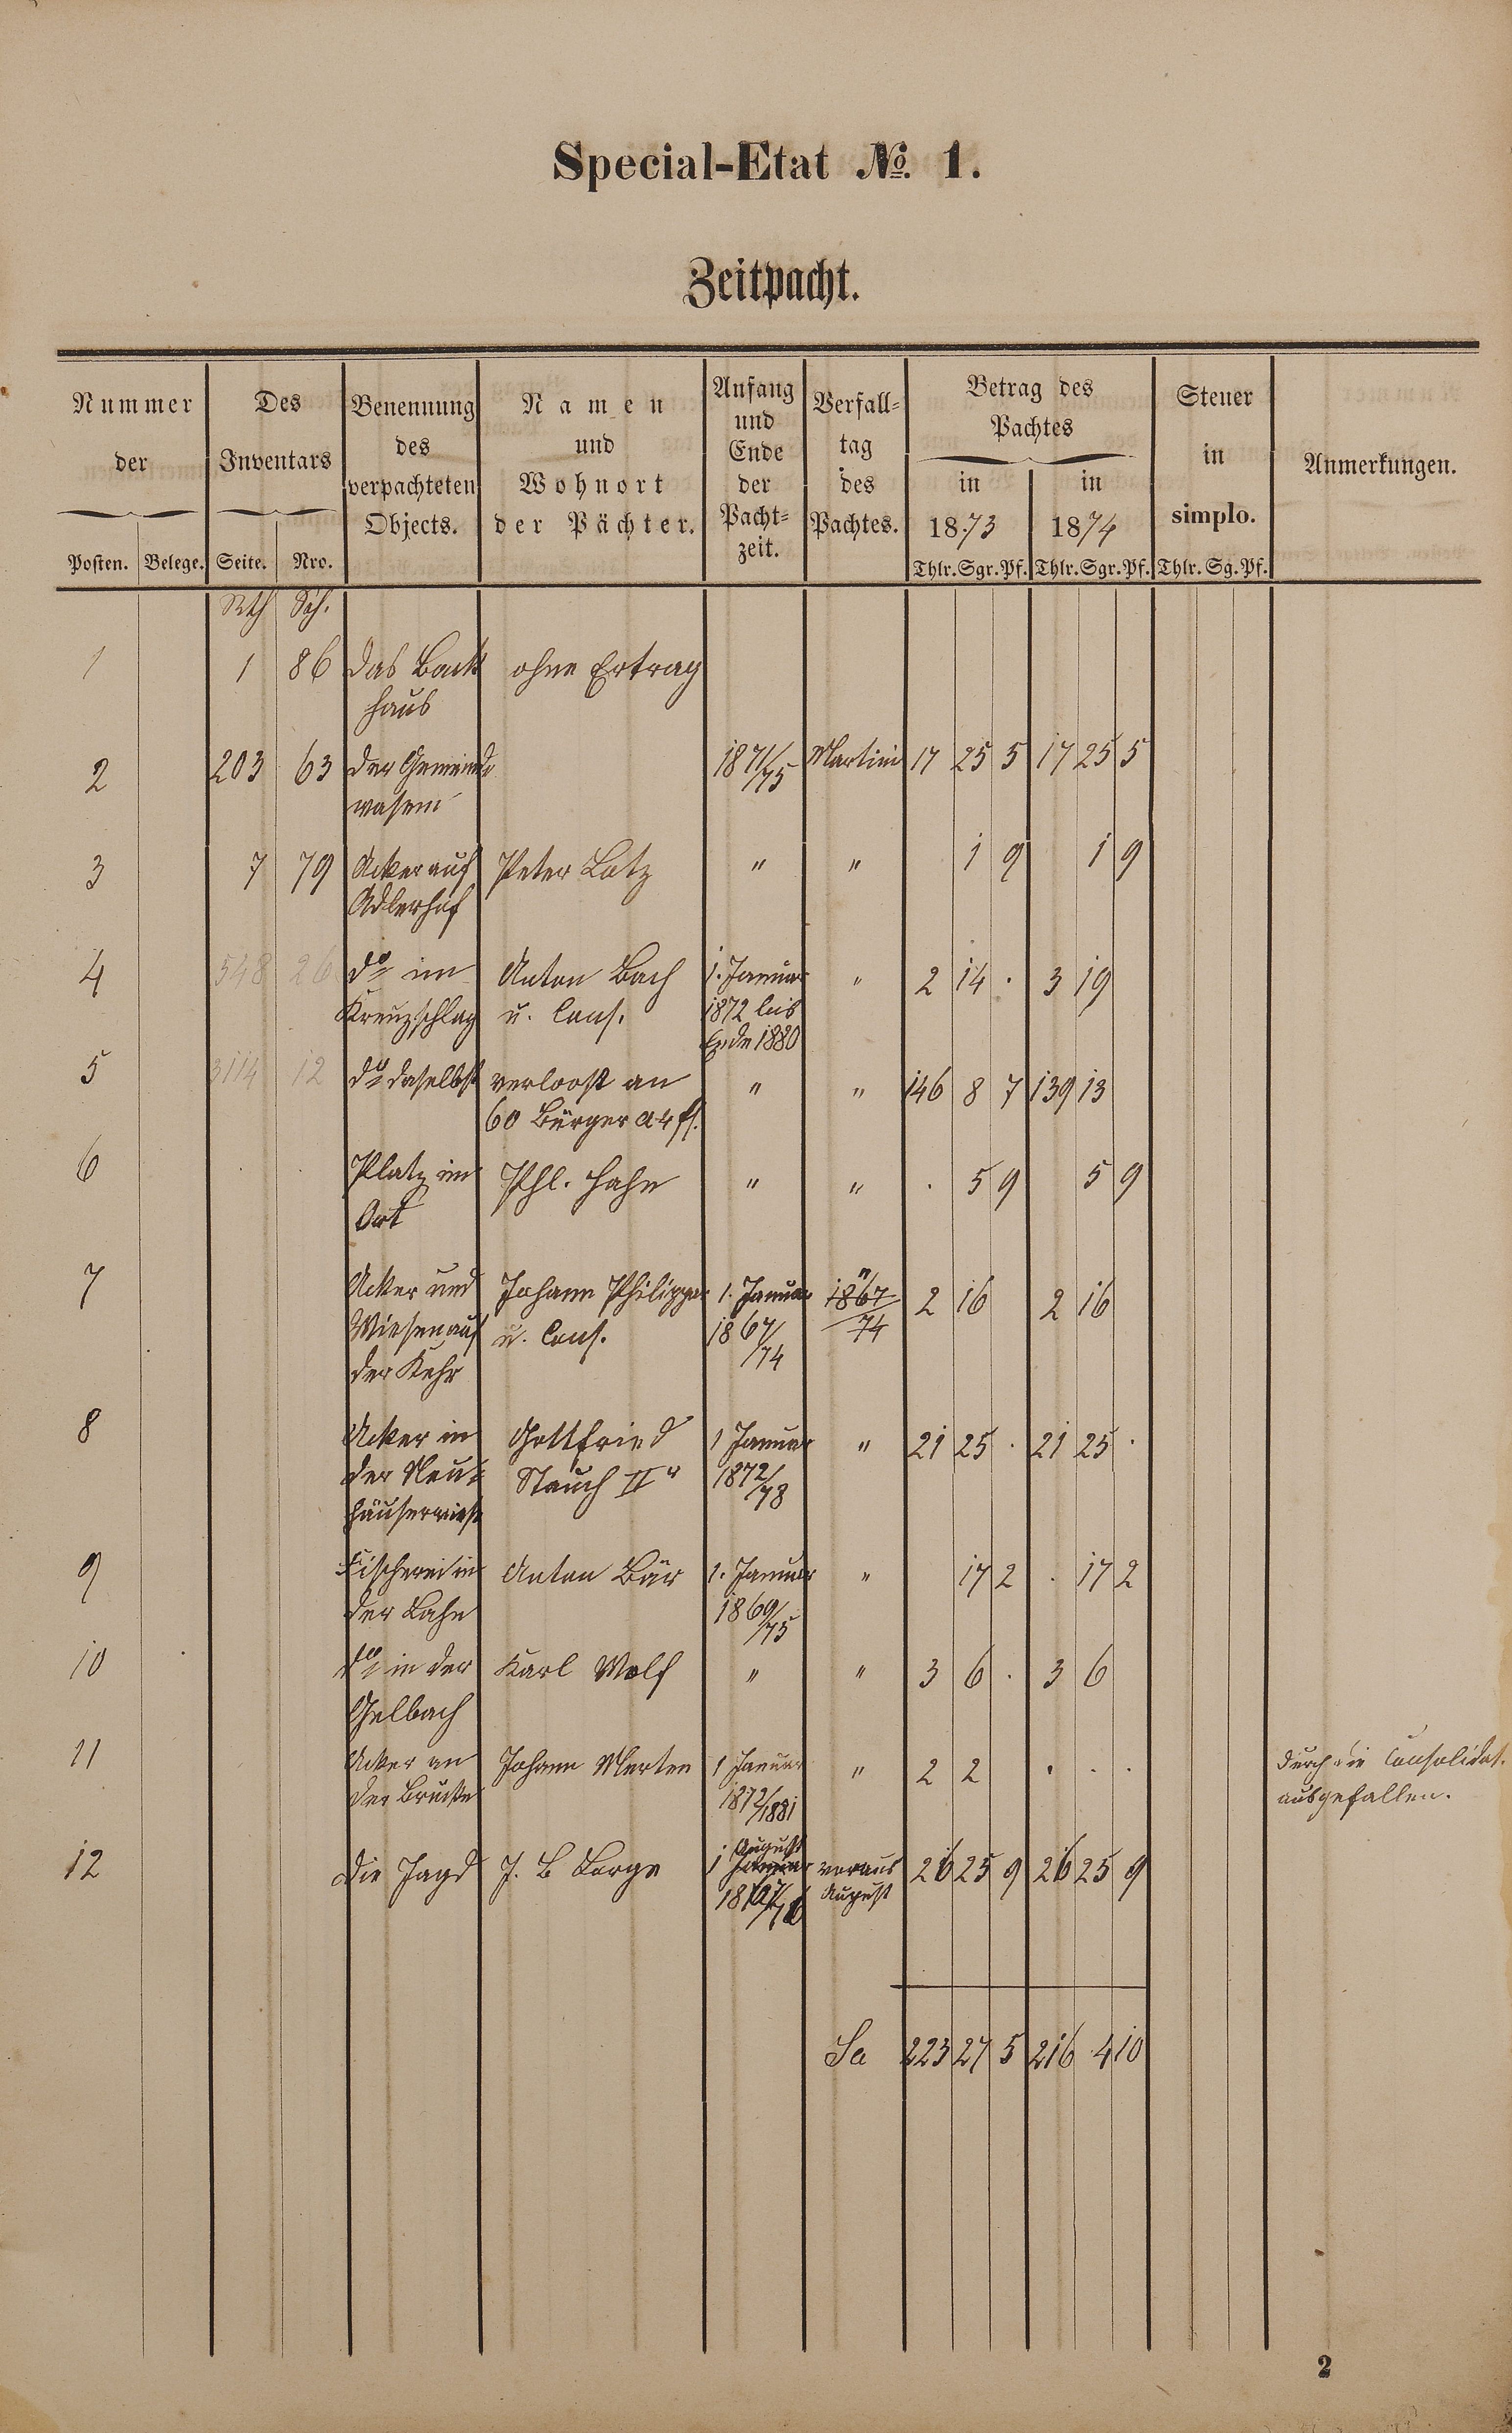 Special-Etat № 1.
Zeitpacht.
Nummer der
Posten. Belege.
Des Inventars
Seite. Nro.
Benennung des verpachteten Objects.
Namen und Wohnort der Pächter.
Anfang und Ende der Pacht-zeit.
Verfall-tag des Pachtes.
Betrag des Pachtes
in 1873 in 1874
Thlr. Sgr. Pf. Thlr. Sgr. Pf.
Steuer in simplo.
Thlr. Sg. Pf.
Anmerkungen.
Rth Sch.
1 1 86 Das Back ohne Ertrag
haus
2 203 63 der Gemeinde 1871/75 Martini 17 25 5 17 25 5
wasem
3 7 79 Acker auf Peter Latz " " 1 9 1 9
Adlerhof
4 548 26 do im Anton Bach 1. Januar " 2 14 . 3 19
Kreuzschlag u. Cons. 1872 bis
Ende 1880
5 3114 12 do daselbst verloost an " " 146 8 7 139 13
60 Bürger a 4 fl.
6 Platz im Phl. Hahn " " . 5 9 5 9
Ort
7 Acker und Johann Philippar 1. Januar " 1867/74 2 16 2 16
Wiesen auf u. Cons. 1867/74
der Kehr
8 Acker in Gottfried 1 Januar " 21 25 . 21 25 .
der Neu- Stauch IIr 1872/78
häuserwiese
9 Fischerei in Anton Bär 1. Januar " 17 2 . 17 2
der Lahn 1869/75
10 do in der Karl Wolf " " 3 6 . 3 6
Gelbach
11 Acker an Johann Merten 1 Januar " 2 2 . . . durch die Consolidat.
der Brücke 1872/1881 ausgefallen.
12 Die Jagd J. B. 1 August Januar voraus 26 25 9 26 25 9
August
Sa 223 27 5 216 4 10
2